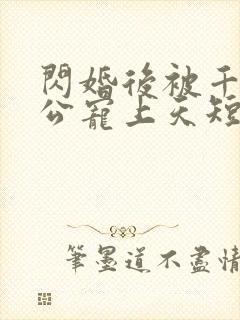 閃婚後被千
公寵上天短
筆墨道不盡情